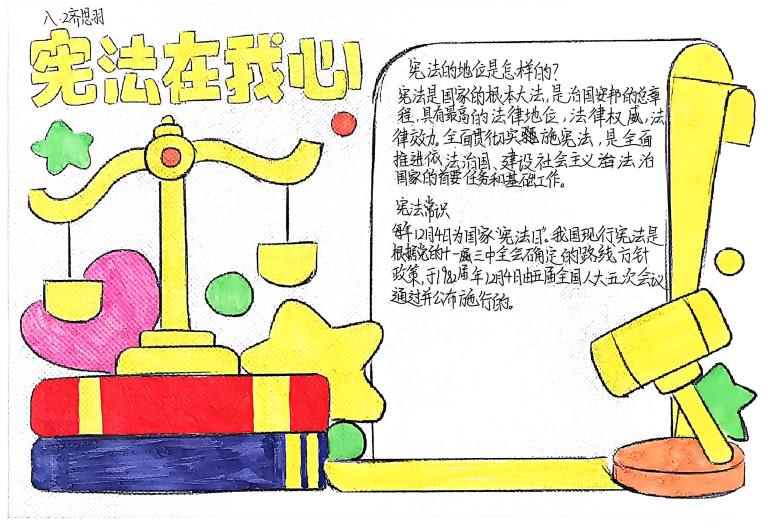 八.2齐思羽
宪法在我心
宪法的地位是怎样的?
宪法是国家的根本大法,是治国安邦的总章
程,具有最高的法律地位,法律权威,法
律效力。全面贯彻实施宪法,是全面
推进依法治国、建设社会主义法治
国家的首要任务和基础工作。
宪法常识
每年12月4日为国家"宪法日"。我国现行宪法是
根据党的十一届三中全会确定的路线方针
政策,于1982年12月4日由五届全国人大五次会议
通过并公布施行的。